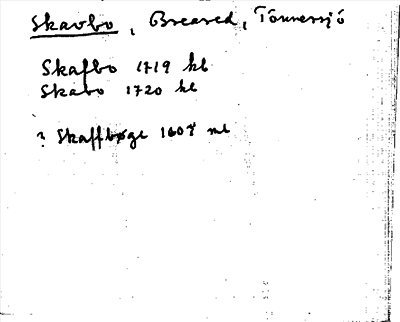 Skavbo, Breared, Tönnersjö
Skafbo 1719 kb
Skabo 1720 kl
? Skaffbøge 1607 ml